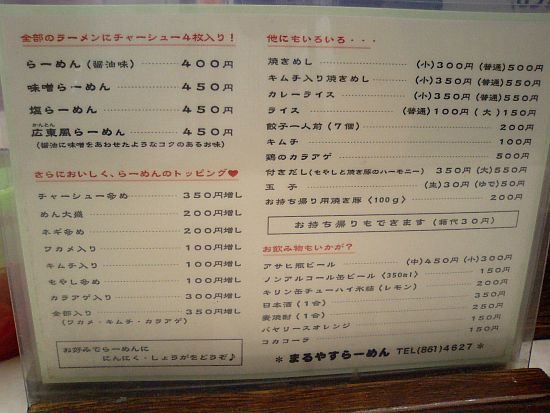 全部のラーメンにチャーシュー4枚入り!
らーめん(醤油味) 400円
味噌らーめん 450円
塩らーめん 450円
かんとん
広東風らーめん 450円
(醤油に味噌をあわせたようなコクのあるお味)
さらにおいしく、らーめんのトッピング♥
チャーシュー多め 350円増し
めん大盛 200円増し
ネギ多め 200円増し
ワカメ入り 100円増し
キムチ入り 100円増し
もやし多め 100円増し
カラアゲ入り 300円増し
全部入り 350円増し
(ワカメ・キムチ・カラアゲ)
お好みでらーめんに
にんにく・しょうがをどうぞ♪
他にもいろいろ・・・
焼きめし (小)300円(普通)500円
キムチ入り焼きめし (小)350円(普通)550円
カレーライス (小)350円(普通)550円
ライス (普通)100円(大)150円
餃子一人前(7個) 200円
キムチ 100円
鶏のカラアゲ 500円
付きだし(もやしと焼き豚のハーモニー) 350円(大)550円
玉子 (生)30円(ゆで)50円
お持ち帰り用焼き豚〈100g〉 200円
お持ち帰りもできます(箱代30円)
お飲み物もいかが?
アサヒ瓶ビール (中)450円(小)300円
ノンアルコール缶ビール〈350ml〉 150円
キリン缶チューハイ氷結(レモン) 200円
日本酒(1合) 350円
麦焼酎(1合) 250円
バヤリースオレンジ 150円
コカコーラ 150円
* まるやすらーめん TEL(861)4627 *